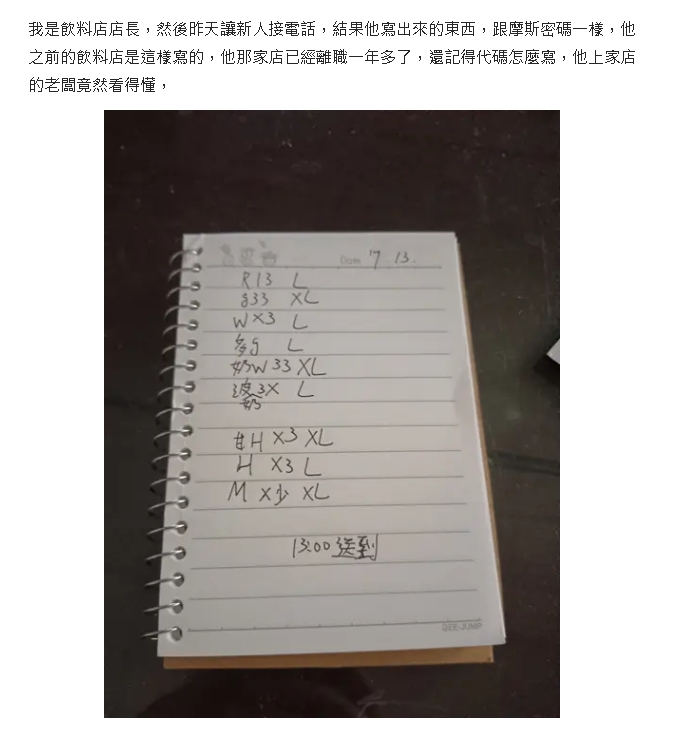 我是飲料店店長，然後昨天讓新人接電話，結果他寫出來的東西，跟摩斯密碼一樣，他
之前的飲料店是這樣寫的，他那家店已經離職一年多了，還記得代碼怎麼寫，他上家店
的老闆竟然看得懂，
Date 7 13.
R13 L
g33 XL
W X3 L
多g L
奶W 33 XL
波3X L
奶
甘H X3 XL
H X3 L
M X少 XL
13:00 送到
GEE-JUMP